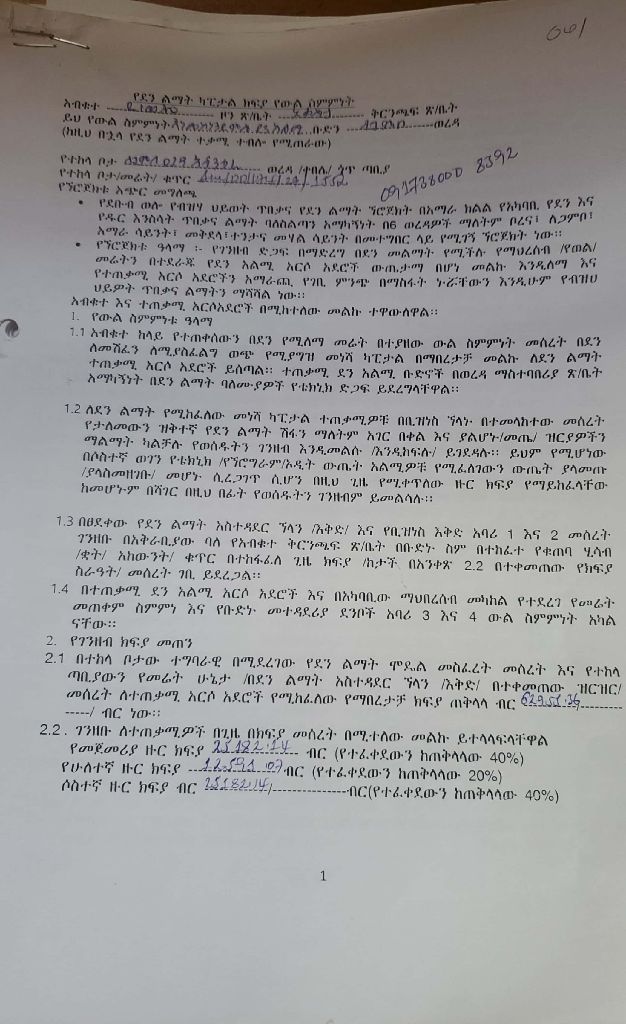 061
የደን ልማት ካፒታል ክፍያ የውል ስምምነት
አብቁተ ------ ዞን ጽ/ቤት ------ ቅርንጫፍ ጽ/ቤት
ይህ የውል ስምምነት ------ ቡድን ------ ወረዳ
(ከዚህ በኋላ የደን ልማት ተቃሚ ተብሎ የሚጠራው)
የተከላ ቦታ ------ ወረዳ /ቀበሌ/ ጎጥ ጣቢያ
የተከላ ቦታ/መሬት/ ቁጥር
0917380000 8392
የኘሮጀክቱ አጭር መግለጫ
• የደቡብ ወሎ የብዝሃ ህይወት ጥበቃና የደን ልማት ኘሮጀክት በአማራ ክልል የአካባቢ የደን እና
የዱር እንስሳት ጥበቃና ልማት ባለስልጣን አማካኝነት በ6 ወረዳዎች ማለትም ቦረና፣ ለጋምቦ፣
አማራ ሳይንት፣ መቅደላ፣ተንታና መሃል ሳይንት በመተግበር ላይ የሚገኝ ኘሮጀክት ነው፡፡
• የኘሮጀክቱ ዓላማ ፡- የገንዘብ ድጋፍ በማድረግ በደን መልማት የሚችሉ የማህረሰብ /የወል/
መሬትን በተደራጁ የደን አልሚ አርሶ አደሮች ውጤታማ በሆነ መልኩ እንዲለማ እና
የተጠቃሚ አርሶ አደሮችን አማራጪ የገቢ ምንጭ በማስፋት ኑሯቸውን እንዲሁም የብዝሀ
ህይዎት ጥበቃና ልማትን ማሻሻል ነው፡፡
አብቁተ እና ተጠቃሚ አርሶአደሮች በሚከተለው መልኩ ተዋውለዋል፡፡
1. የውል ስምምነቱ ዓላማ
1.1 አብቁተ ከላይ የተጠቀሰውን በደን የሚለማ መሬት በተያዘው ውል ስምምነት መሰረት በደን
ለመሸፈን ለሚያስፈልግ ወጭ የሚያግዝ መነሻ ካፒታል በማበረታቻ መልኩ ለደን ልማት
ተጠቃሚ አርሶ አደሮች ይሰጣል፡፡ ተጠቃሚ ደን አልሚ ቡድኖች በወረዳ ማስተባበሪያ ጽ/ቤት
አማካኝነት በደን ልማት ባለሙያዎች የቴክኒክ ድጋፍ ይደረግላቸዋል፡፡
1.2 ለደን ልማት የሚከፈለው መነሻ ካፒታል ተጠቃሚዎቹ በቢዝነስ ኘላኑ በተመላከተው መሰረት
የታለመውን ዝቅተኛ የደን ልማት ሽፋን ማለትም አገር በቀል እና ያልሆኑ/መጤ/ ዝርያዎችን
ማልማት ካልቻሉ የወሰዱትን ገንዘብ እንዲመልሱ /እንዲከፍሉ/ ይገደዳሉ፡፡ ይህም የሚሆነው
በሶስተኛ ወገን የቴክኒክ /የኘሮግራም/ኦዲት ውጤት አልሚዎቹ የሚፈለገውን ውጤት ያላመጡ
/ያላስመዘገቡ/ መሆኑ ሲረጋገጥ ሲሆን በዚህ ጊዜ የሚቀጥለው ዙር ክፍያ የማይከፈላቸው
ከመሆኑም በሻገር በዚህ በፊት የወሰዱትን ገንዘብም ይመልሳሉ፡፡
1.3 በፀደቀው የደን ልማት አስተዳደር ኘላን /እቅድ/ እና የቢዝነስ እቅድ አባሪ 1 እና 2 መሰረት
ገንዘቡ በአቅራቢያው ባለ የአብቁተ ቅርንጫፍ ጽ/ቤት በቡድኑ ስም በተከፈተ የቁጠባ ሂሳብ
/ቋት/ አካውንት/ ቁጥር በተከፋፈለ ጊዜ ክፍያ /ከታች በአንቀጽ 2.2 በተቀመጠው የክፍያ
ስራዓት/ መሰረት ገቢ ይደረጋል፡፡
1.4 በተጠቃሚ ደን አልሚ አርሶ አደሮች እና በአካባቢው ማህበረሰብ መካከል የተደረገ የመሬት
መጠቀም ስምምነ እና የቡድኑ መተዳደሪያ ደንቦች አባሪ 3 እና 4 ውል ስምምነት አካል
ናቸው፡፡
2. የገንዘብ ክፍያ መጠን
2.1 በተከላ ቦታው ተግባራዊ በሚደረገው የደን ልማት ሞዴል መስፈረት መሰረት እና የተከላ
ጣቢያውን የመሬት ሁኔታ /በደን ልማት አስተዳደር ኘላን /እቅድ/ በተቀመጠው ዝርዝር/
መሰረት ለተጠቃሚ አርሶ አደሮች የሚከፈለው የማበረታቻ ክፍያ ጠቅላላ ብር 62951.36/---------
-----/ ብር ነው፡፡
2.2. ገንዘቡ ለተጠቃሚዎች በጊዜ በክፍያ መሰረት በሚተለው መልኩ ይተላላፍላቸዋል
የመጀመሪያ ዙር ክፍያ 25182.14 ብር (የተፈቀደውን ከጠቅላላው 40%)
የሁለተኛ ዙር ክፍያ ---12591.07 ብር (የተፈቀደውን ከጠቅላላው 20%)
ሶስተኛ ዙር ክፍያ ብር 25182.14/---------------ብር(የተፈቀደውን ከጠቅላላው 40%)
1